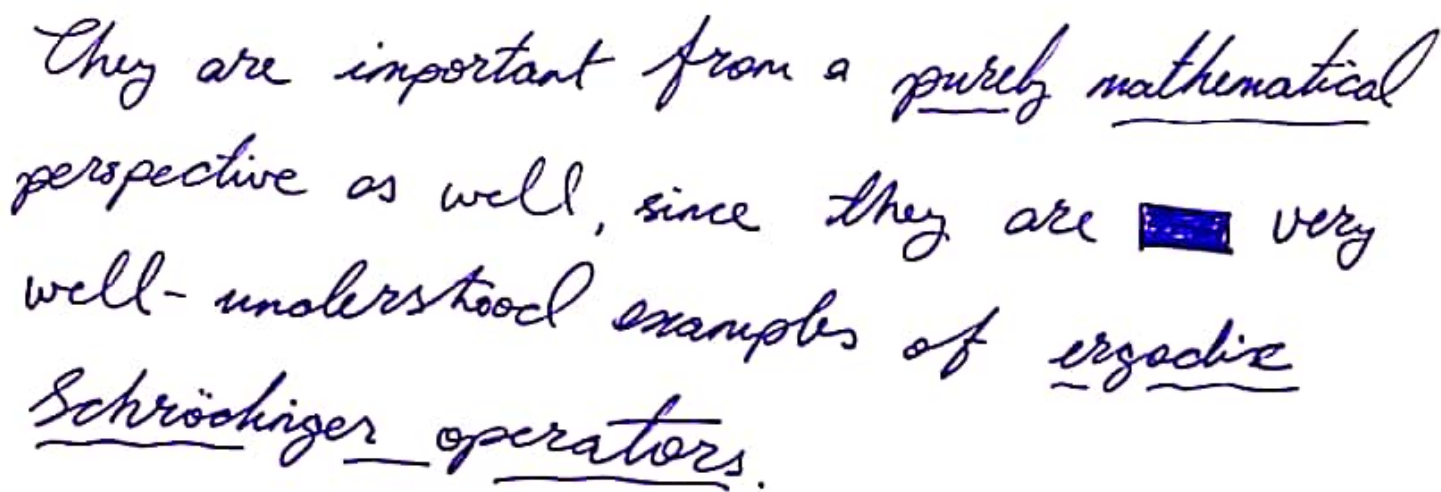 They are important from a purely mathematical
perspective as well, since they are very
well-understood examples of ergodic
Schrödinger operators.